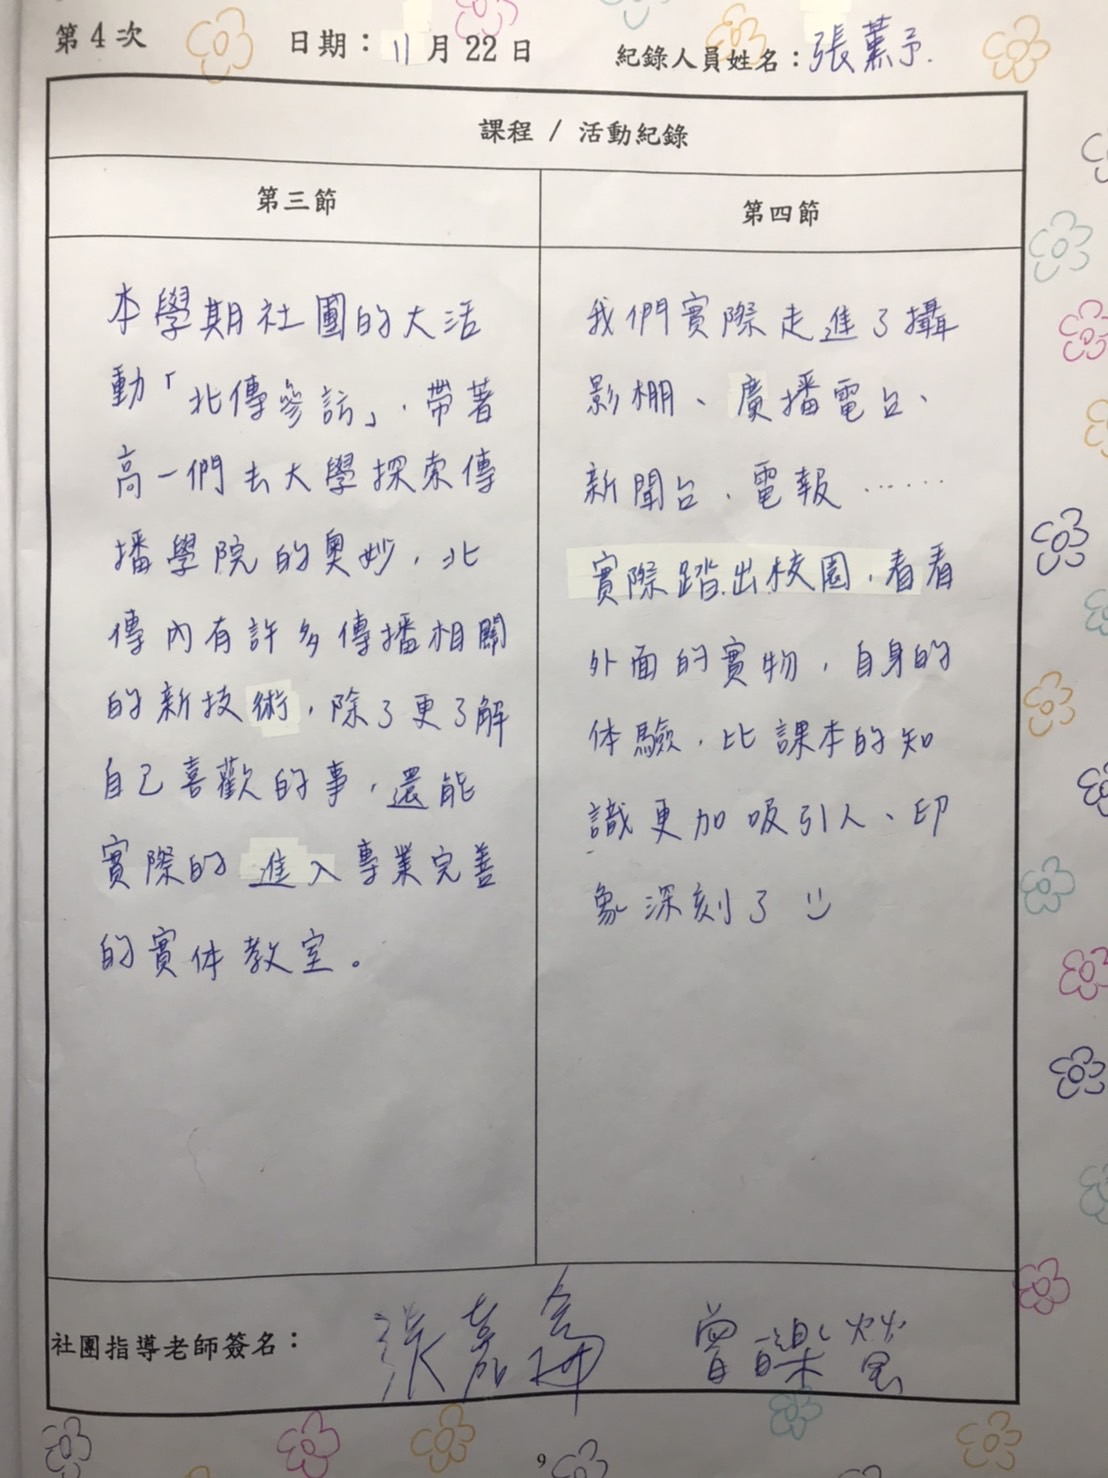 第4次 日期：11月22日 紀錄人員姓名：張薰予.
課程 / 活動紀錄
第三節
本學期社團的大活
動「北傳參訪」，帶著
高一們去大學探索傳
播學院的奧妙，北
傳內有許多傳播相關
的新技術，除了更了解
自己喜歡的事，還能
實際的進入專業完善
的實体教室。
第四節
我們實際走進了攝
影棚、廣播電台、
新聞台、電報……
實際踏出校園，看看
外面的實物，自身的
体驗，比課本的知
識更加吸引人、印
象深刻了
社團指導老師簽名： 張嘉倫
9